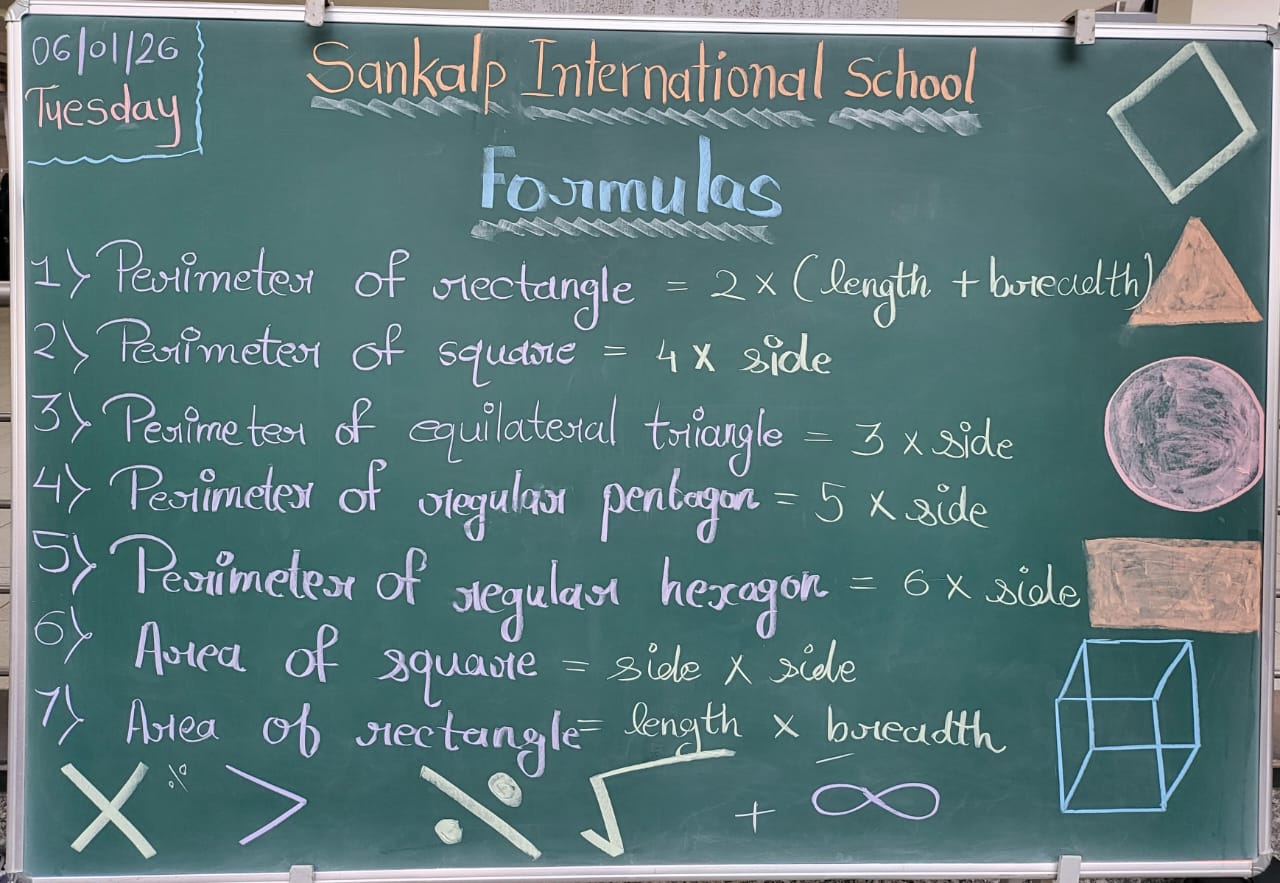 06/01/26
Tuesday
Sankalp International School
Formulas
1) Perimeter of rectangle = 2 × (length + breadth)
2) Perimeter of square = 4 × side
3) Perimeter of equilateral triangle = 3 × side
4) Perimeter of regular pentagon = 5 × side
5) Perimeter of regular hexagon = 6 × side
6) Area of square = side × side
7) Area of rectangle = length × breadth
× % > % √ + ∞